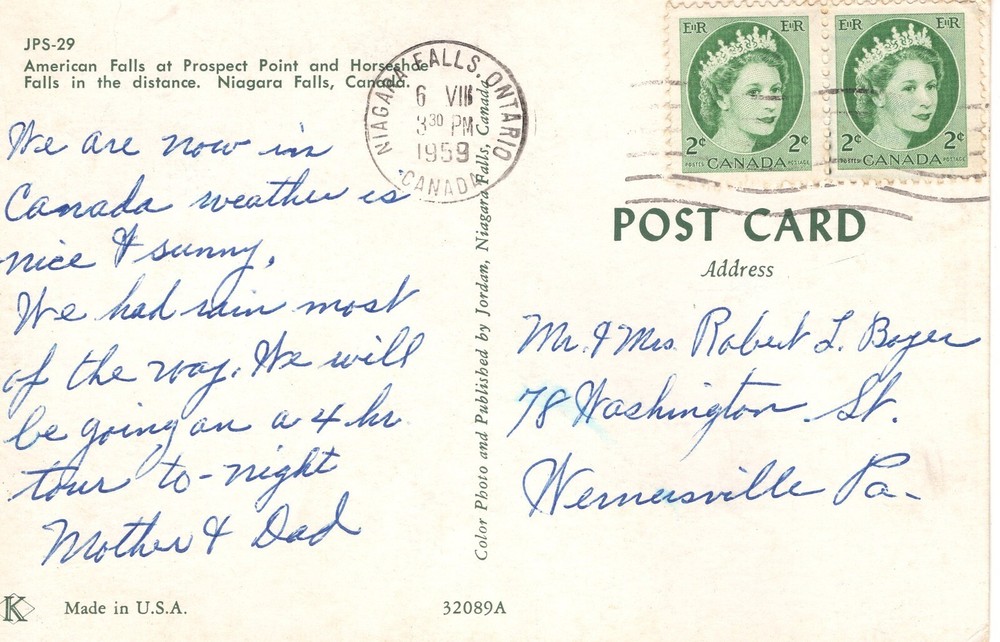 JPS-29
American Falls at Prospect Point and Horseshoe
Falls in the distance. Niagara Falls, Canada.
We are now in
Canada weather is
nice & sunny.
We had rain most
of the way. We will
be going on a 4 hr
tour to-night
Mother & Dad
K
Made in U.S.A.
NIAGARA FALLS, ONTARIO
6 VIII
3 30 PM
1959
CANADA
Color Photo and Published by Jordan, Niagara Falls, Canada
32089A
EIIR EIIR
2¢ 2¢
POSTES CANADA POSTAGE
EIIR EIIR
2¢ 2¢
POSTES CANADA POSTAGE
POST CARD
Address
Mr. & Mrs. Robert L. Boyer
78 Washington St.
Wernersville Pa-